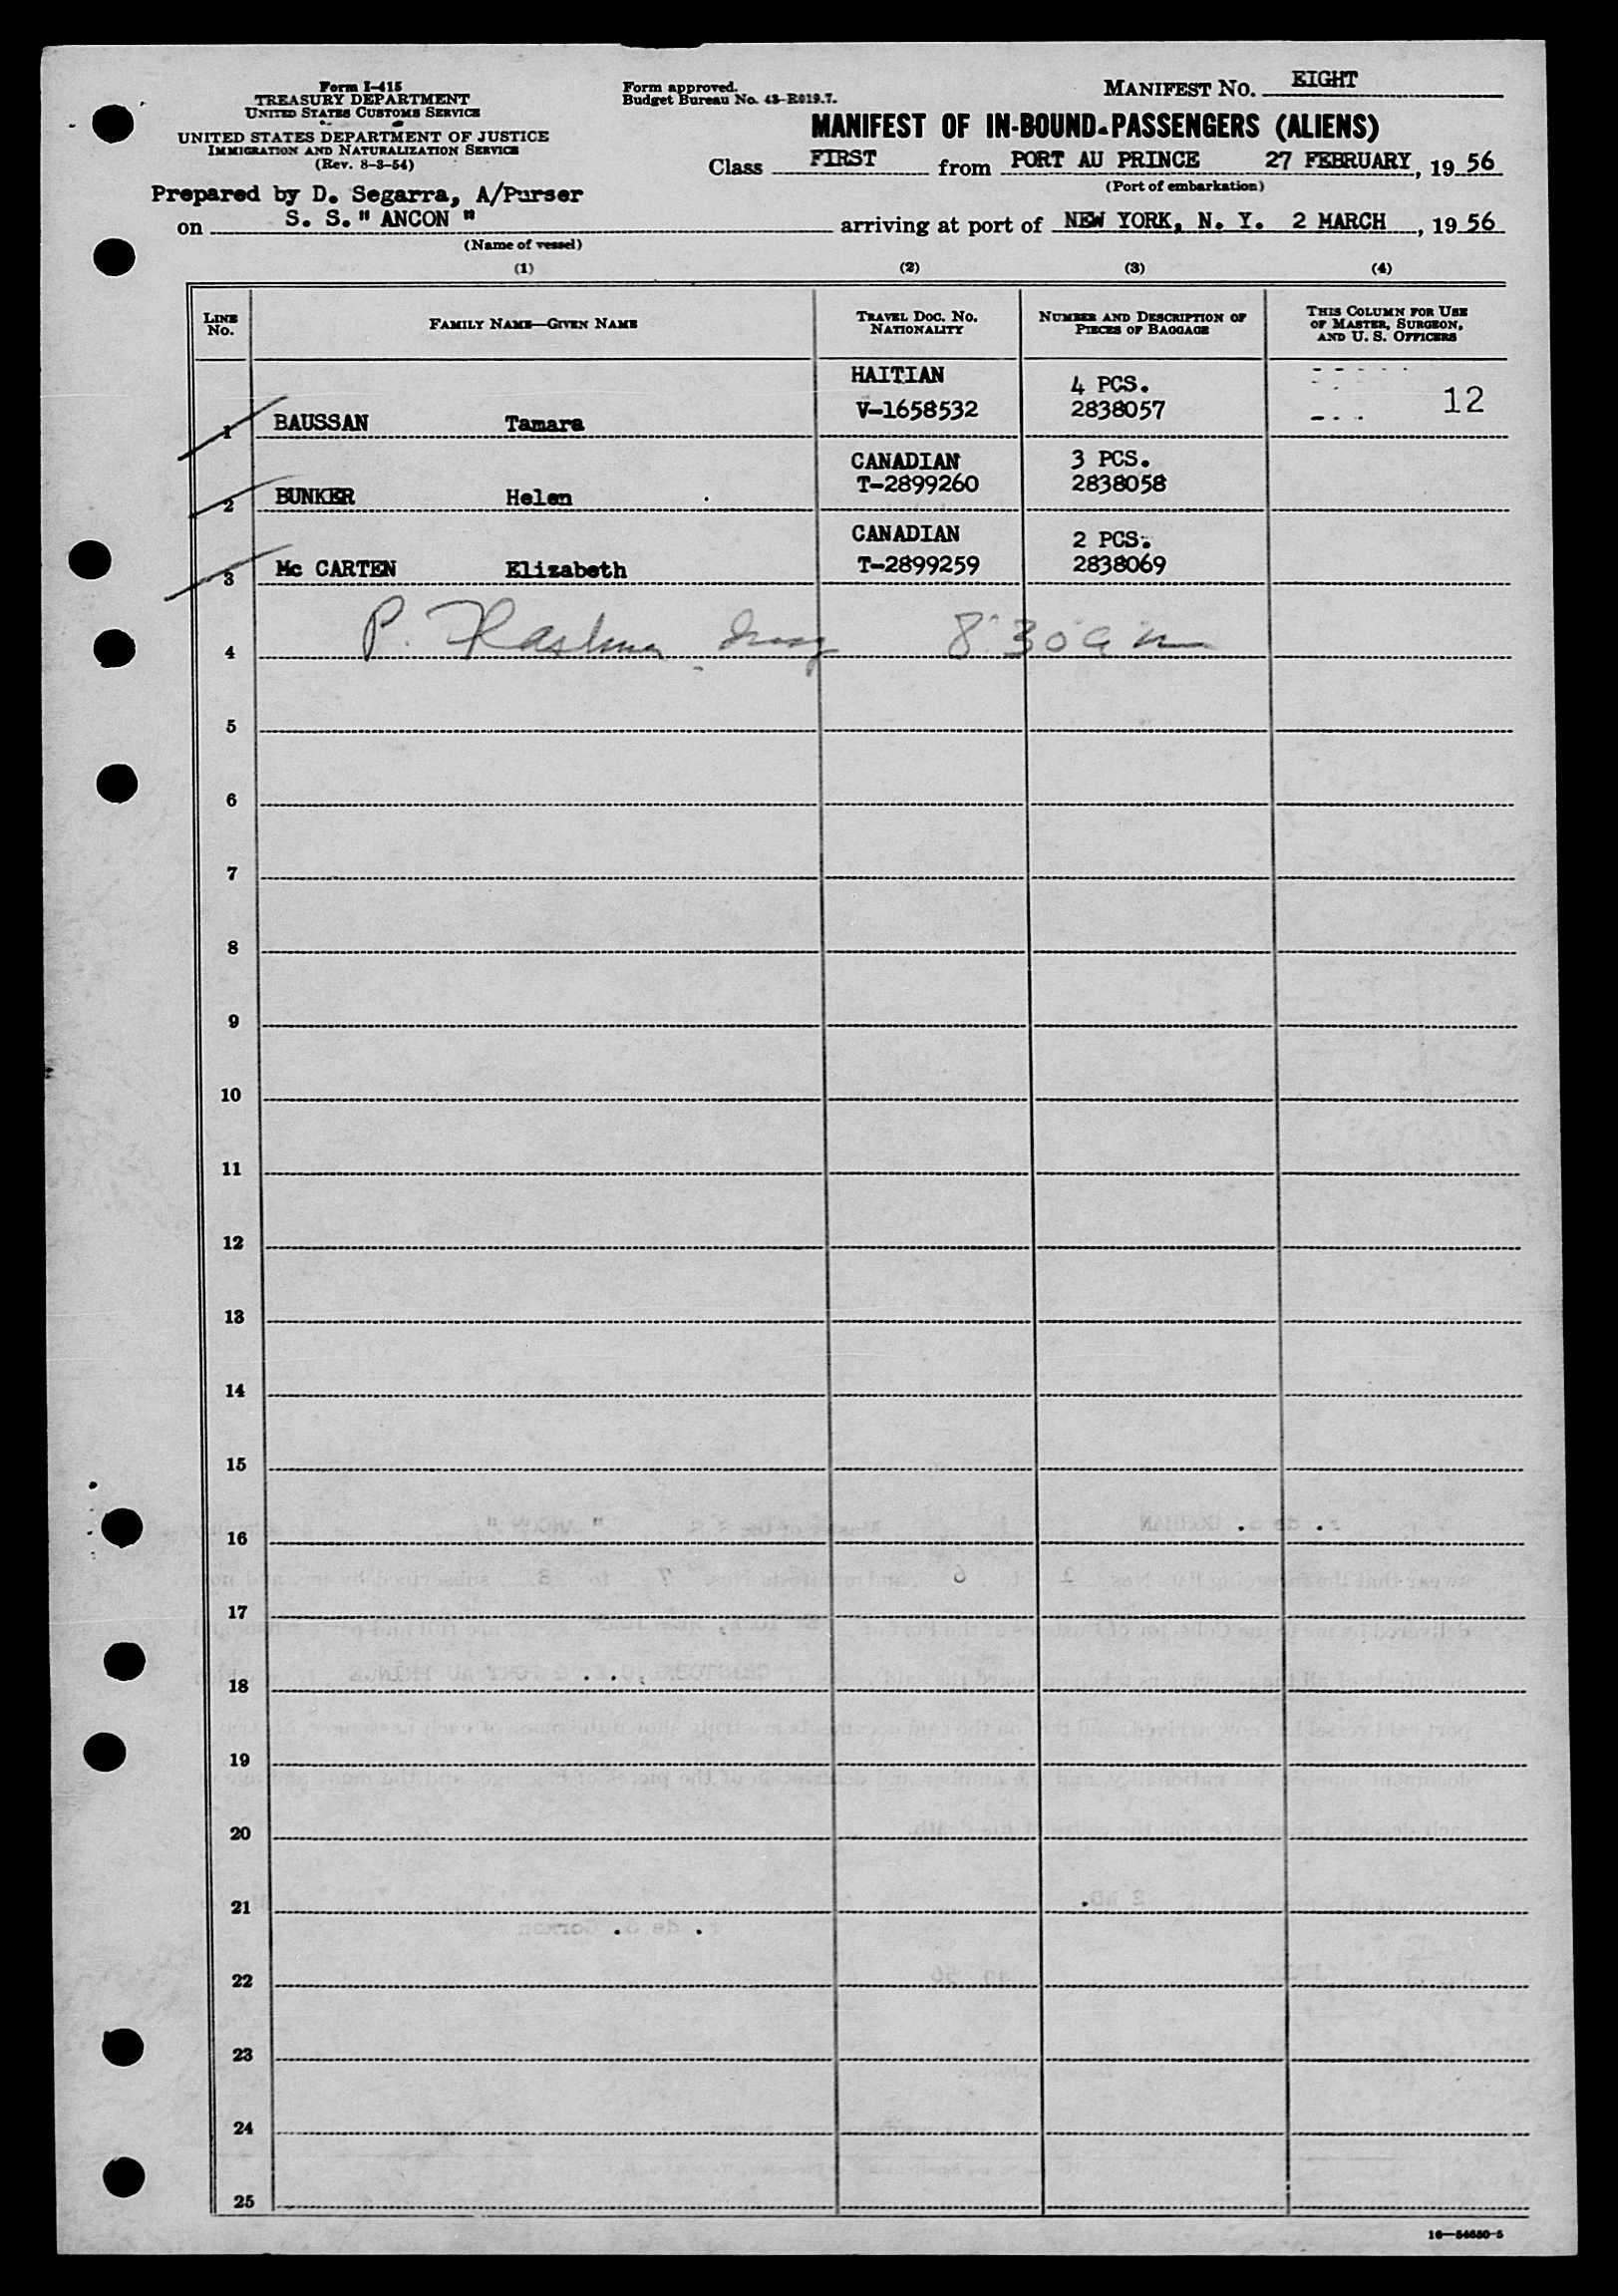 Form I-415
TREASURY DEPARTMENT
UNITED STATES CUSTOMS SERVICE
UNITED STATES DEPARTMENT OF JUSTICE
IMMIGRATION AND NATURALIZATION SERVICE
(Rev. 8-3-54)
Form approved.
Budget Bureau No. 43-R019.7.
MANIFEST NO. EIGHT
MANIFEST OF IN-BOUND PASSENGERS (ALIENS)
Class FIRST from PORT AU PRINCE 27 FEBRUARY, 19 56
(Port of embarkation)
Prepared by D. Segarra, A/Purser
on S. S." ANCON " arriving at port of NEW YORK, N. Y. 2 MARCH, 19 56
(Name of vessel)
(1) (2) (3) (4)
LINE NO.
FAMILY NAME—GIVEN NAME
TRAVEL DOC. NO. NATIONALITY
NUMBER AND DESCRIPTION OF PIECES OF BAGGAGE
THIS COLUMN FOR USE OF MASTER, SURGEON, AND U. S. OFFICERS
HAITIAN 4 PCS.
1 BAUSSAN Tamara V-1658532 2838057 12
CANADIAN 3 PCS.
2 BUNKER Helen T-2899260 2838058
CANADIAN 2 PCS.
3 Mc CARTEN Elizabeth T-2899259 2838069
4 P. 8:30 a m
5
6
7
8
9
10
11
12
13
14
15
16
17
18
19
20
21
22
23
24
25